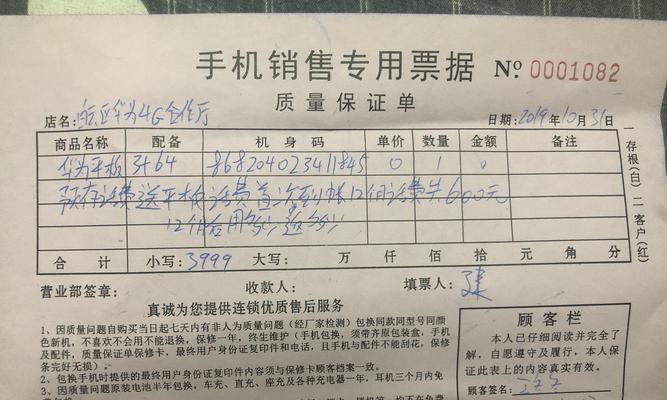 手机销售专用票据 No 0001082
质量保证单
店名: 华为4G合作厅 日期: 2019年10月31日
商品名称 配备 机身码 单价 数量 金额 备注
华为平板 3+64 868204023411845 0 1 0
预存话费送平板 话费首次到帐12个月话费共600元
12个月后用多少返多少
合计 小写: 3999 大写: 万 仟 佰 拾 元 角 分
一存根(白) 二客户(红)
营业部签章: 收款人: 填票人:
真诚为您提供连锁优质售后服务
1、因质量问题自购买当日起七天内有非人为质量问题(经厂家检测)包换同款同型号同颜
色新机,不喜欢不会用不能退换,保修一年,终生维护(手机包换,须带齐原包装盒,手机
及配件,质量保证单保修卡,最终用户身份证复印件和电话,且手机与配件不能刮花,保修
条完好无损)
2、包换手机时提供的最终用户身份证复印件内容须与保修卡顾客档案一致。
3、因质量问题原装电池半年包换,车充、直充、座充及各种充电器一年,耳机三个月内免
顾客栏
本人已仔细阅读并完全了
解,自愿遵守及履行,本人保
证此表上的内容真实有效。
顾客签名: